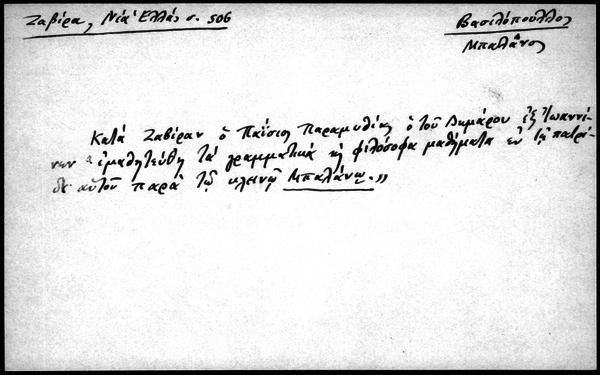 Ζαβίρα, Νέα Ἑλλάς σ. 506
Βασιλόπουλλος
Μπαλᾶνος
Κατά Ζαβίραν ὁ Παΐσιος Παραμυθίας ὁ τοῦ Δημάρου ἐξ Ἰωαννί-
νων "ἐμαθητεύθη τά γραμματικά κ φιλόσοφα μαθήματα ἐν τῇ πατρί-
δι αὐτοῦ παρά τῷ κλεινῷ Μπαλάνῳ."